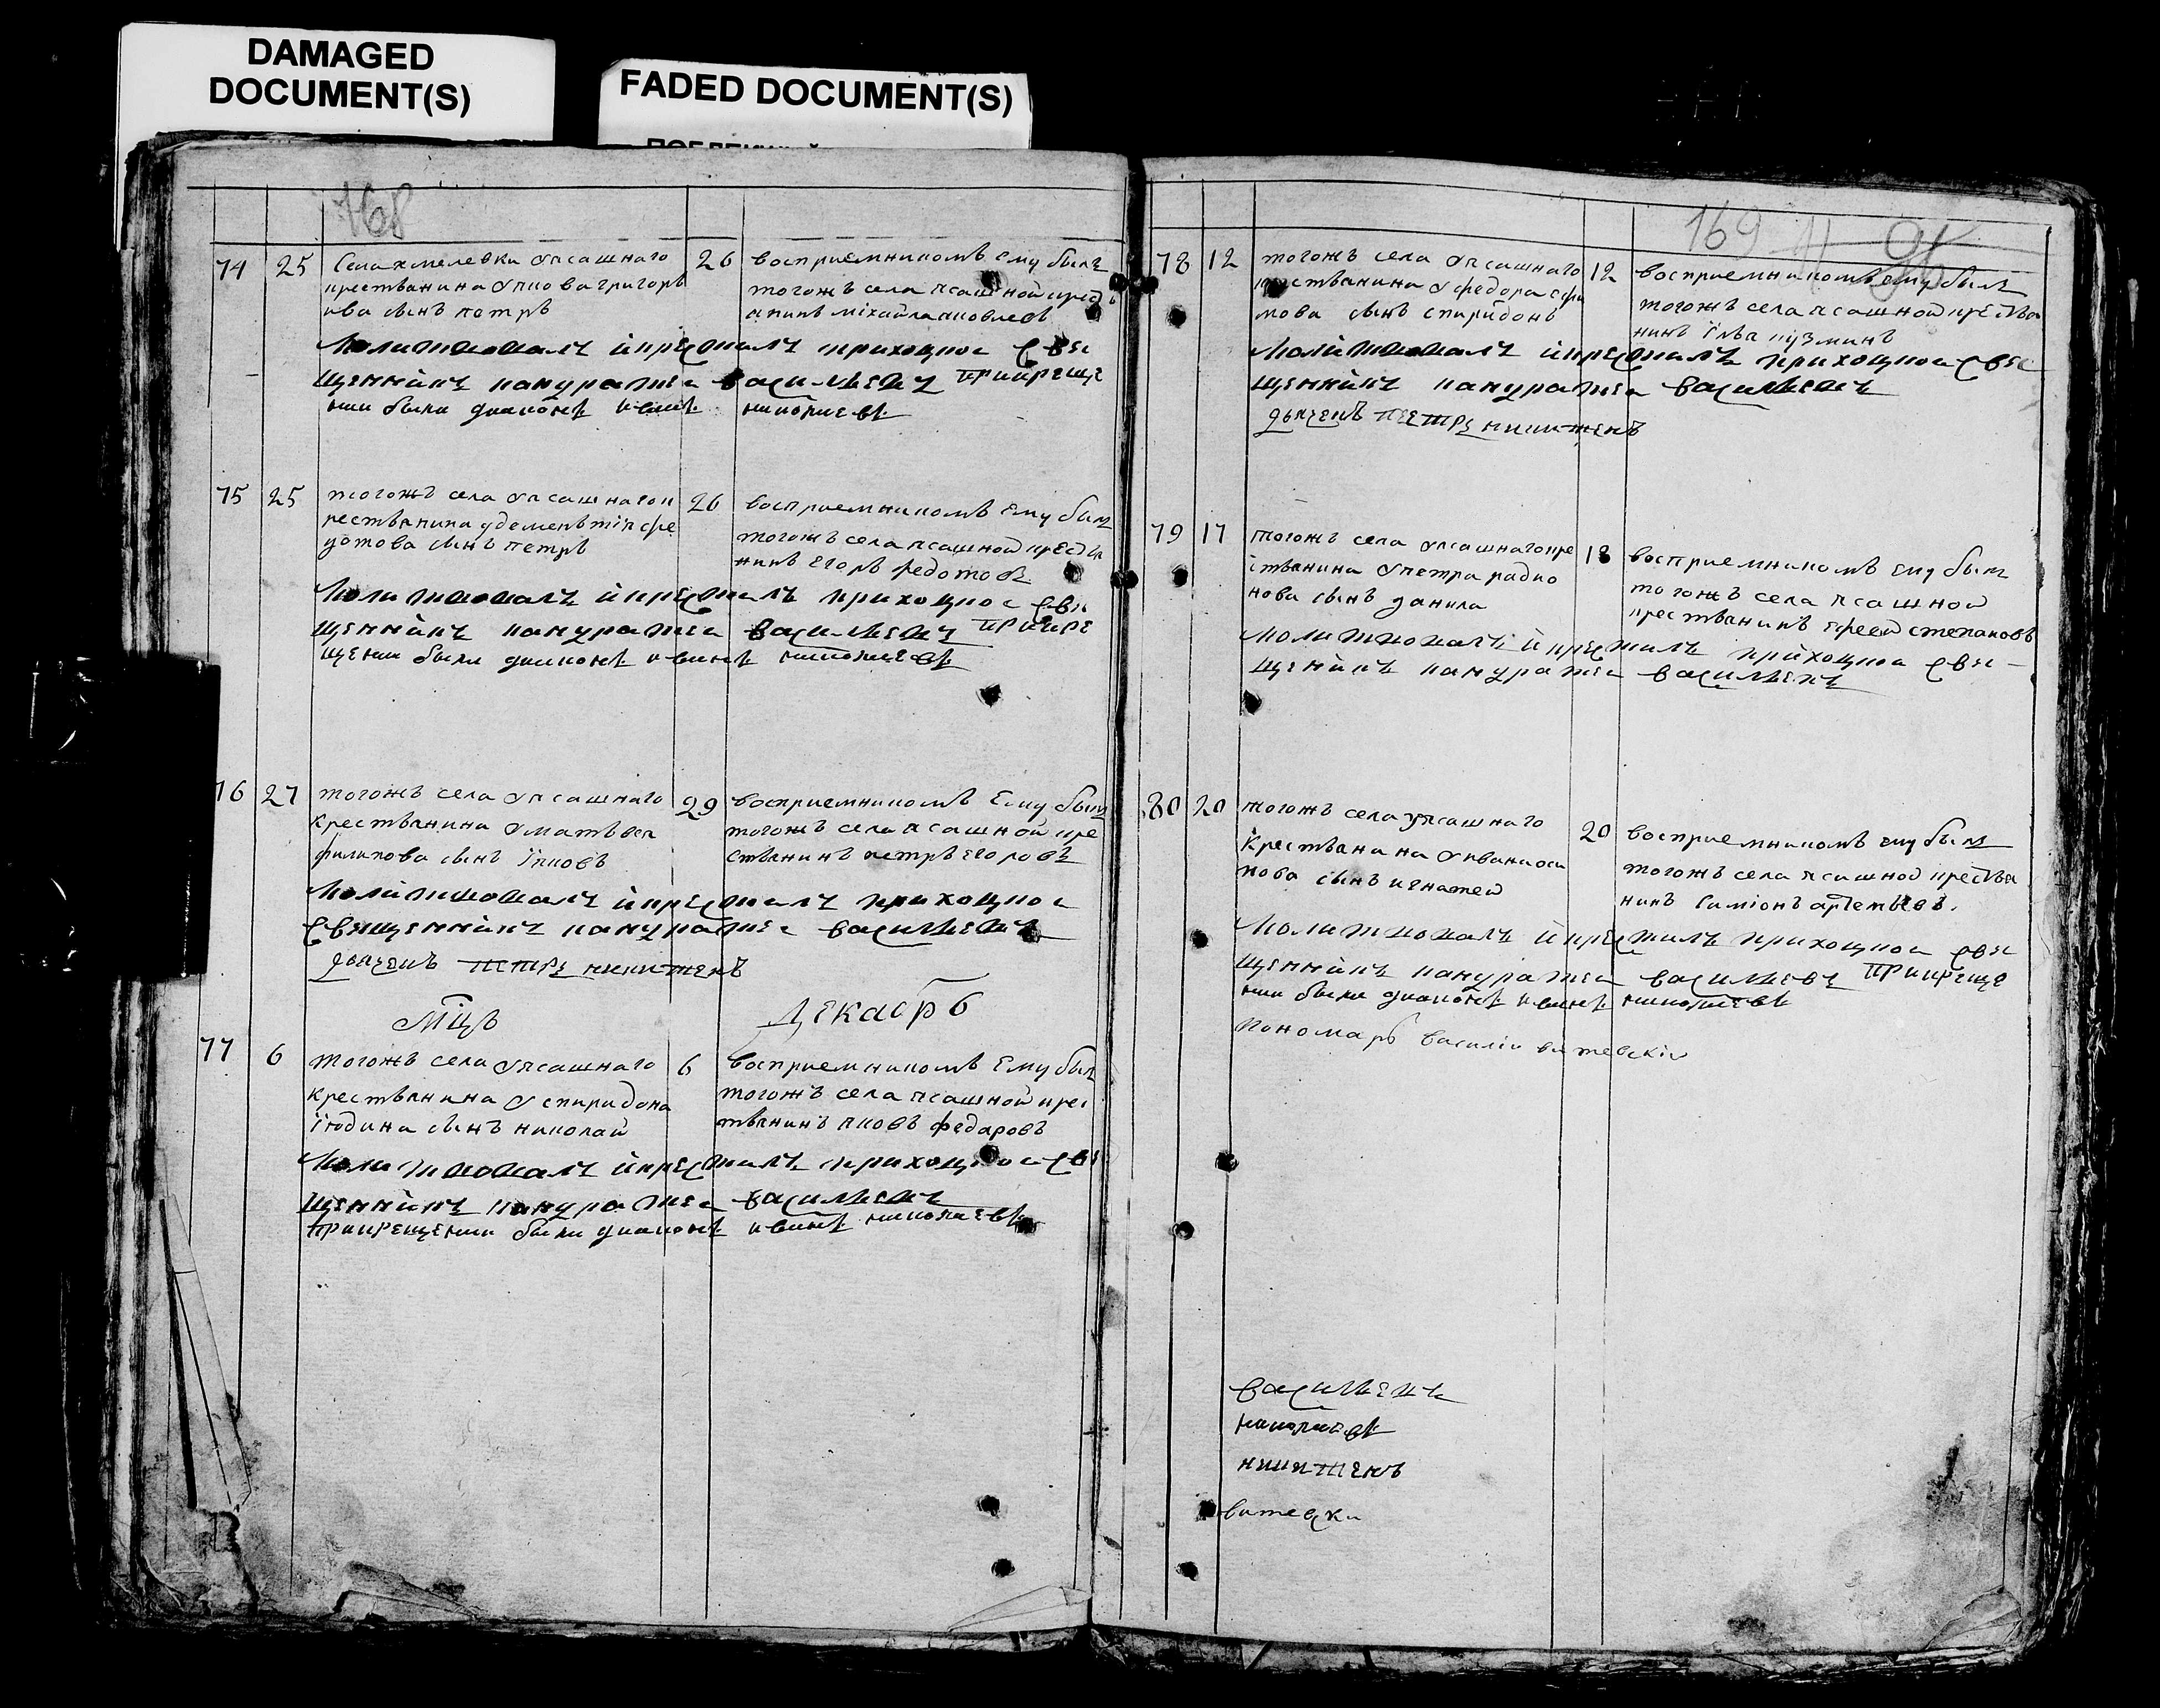 DAMAGED
DOCUMENT(S)
FADED DOCUMENT(S)
168
74 25 Села хмелевки упсашнаго
крестьянина Уякова григорь
ива сынъ петръ
26 восприемникомъ ему былъ
тогожъ села псашной крестья
анинъ міхайла яковлевъ
Молитвовалъ и крестилъ приходцкоа Свя
щенникъ кандратеи Васильевъ прикреще
нии были диаконъ иванъ николаевъ
75 25 тогожъ села упсашнагок
рестьянина удеменътія фе
дотова сынъ петръ
26 восприемникомъ ему былъ
тогожъ села псашной кресть
нинъ Егоръ федотовъ
Молитвовалъ и крестилъ приходцкоа Свя
щенникъ кандратеи Васильевъ прикре
щении были диаконъ иванъ николаевъ
76 27 тогожъ села упсашнаго
крестьянина Уматъвея
филипова сынъ їяковъ
29 восприемникомъ Ему былъ
тогожъ села псашной кре
стьянинъ петръ Егоровъ
Молитвовалъ и крестилъ приходцкоа
Священникъ кандратеи Васильевъ
дьячекъ петръ никитенъ
Мцъ Декабрь
77 6 тогожъ села упсашнаго
крестьянина Успиридона
їюдина сынъ николаи
6 восприемникомъ Ему былъ
тогожъ села псашной крес
тьянинъ яковъ федаровъ
Молитвовалъ и крестилъ приходцкоа Свя
щенникъ кандратеи Васильевъ
прикрещении были диаконъ иванъ николаевъ
169
78 12 тогожъ села упсашнаго
крестьянина Уфедора Ефи
мова сынъ спиридонъ
12 восприемникомъ ему былъ
тогожъ села псашной крестья
нинъ їлья кузминъ
Молитвовалъ и крестилъ приходцкоа Свя
щенникъ кандратеи Васильевъ
дьячекъ петръ никитенъ
79 17 тогожъ села упсашнагокре
стьянина Упетра радио
нова сынъ данила
18 восприемникомъ ему былъ
тогожъ села псашной
крестьянинъ ефреи степановъ
Молитвовалъ и крестилъ приходцкоа Свя
щеникъ кандратеи Васильевъ
80 20 тогожъ села упсашнаго
крестьянина Уиванаоси
пова сынъ игнатеи
20 восприемникомъ ему былъ
тогожъ села псашной крестья
нинъ Симіонъ артемьевъ.
Молитвовалъ и крестилъ приходцкоа Свя
щенникъ кандратеи Васильевъ прикреще
нии были диаконъ иванъ николаевъ
пономарь василіи витевскіи
Васильевъ
николаевъ
никитенъ
витевски